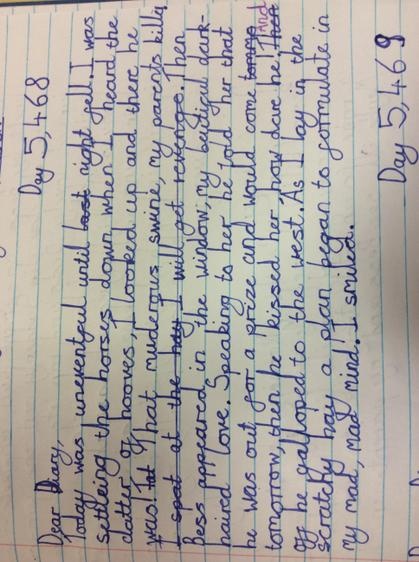 Day 5,468
Dear Diary,
Today was uneventful until last night fell. I was
settling the horses down when I heard the
clatter of hooves, I looked up and there he
was! That muderous swine, my parents killer
I spat at the hay I will get revenge. Then
Bess appeared in the window, my butiful dark-
haired love. Speaking to her he told her that
he was out for a prize and would come
tomorrow, then he kissed her, how dare he! And
off he galloped to the west. As I lay in the
scratchy hay a plan began to formulate in
my mad, mad mind. I smiled.
Day 5,469